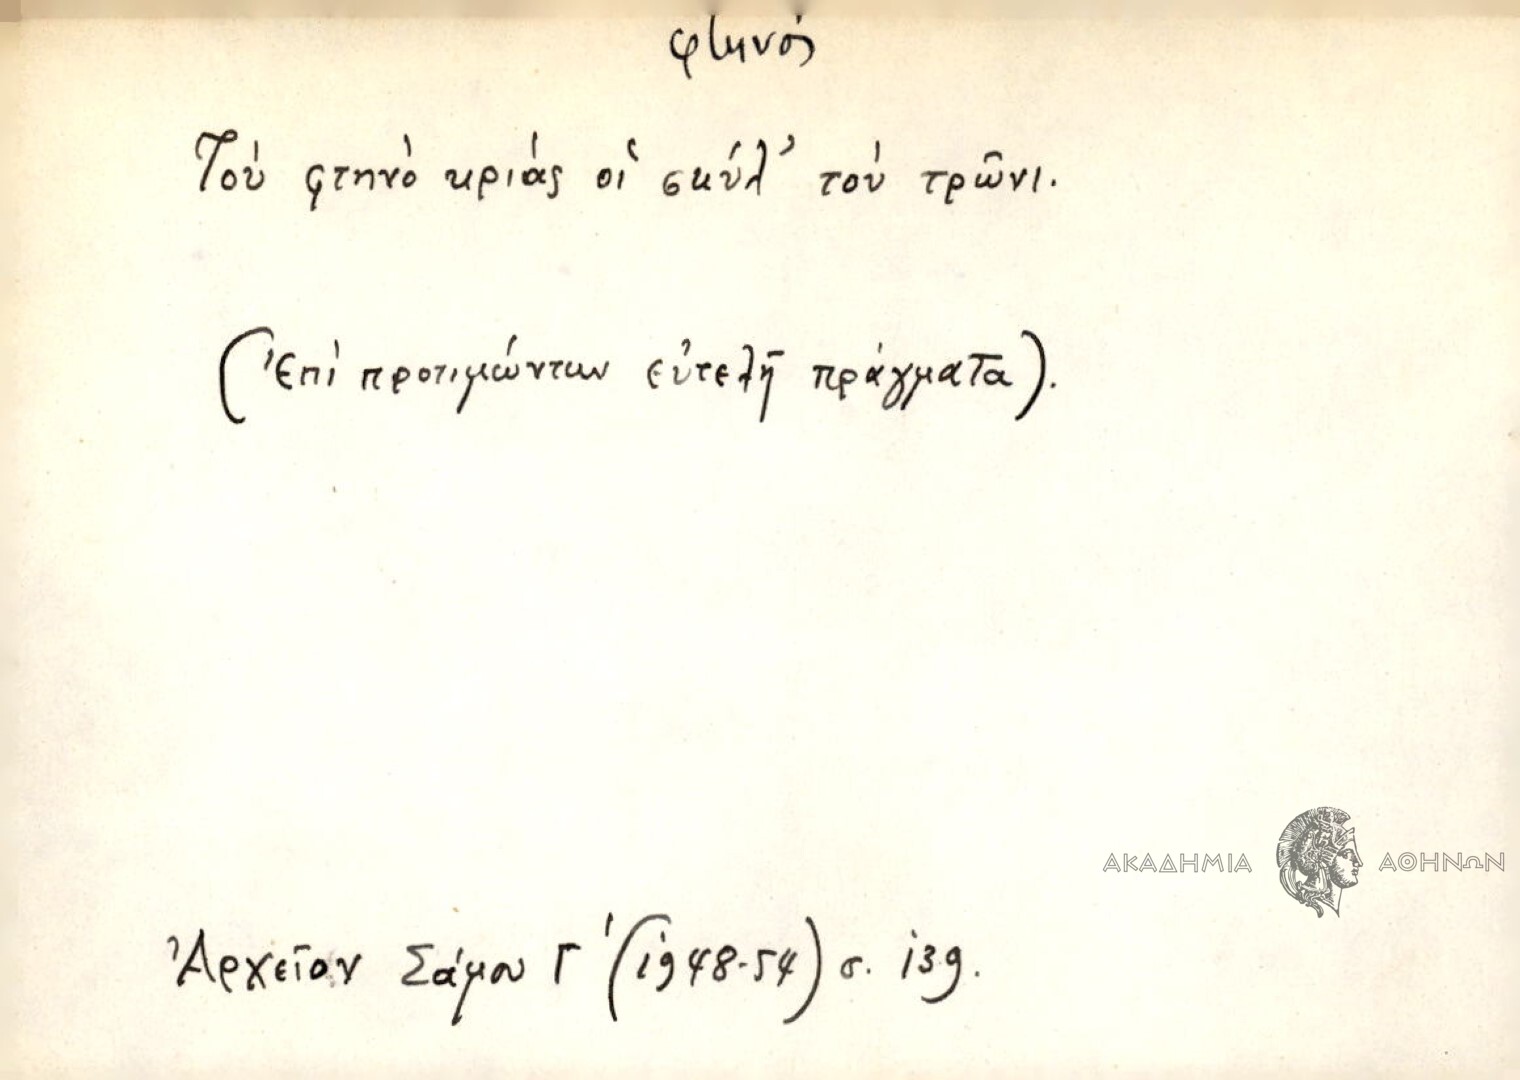 φτηνός
Τοὺ φτηνὸ κριὰς οἱ σκύλ' τοὺ τρῶνι.
(Ἐπὶ προτιμώντων εὐτελῆ πράγματα).
ΑΚΑΔΗΜΙΑ ΑΘΗΝΩΝ
Ἀρχεῖον Σάμου Γ' (1948-54) σ. 139.